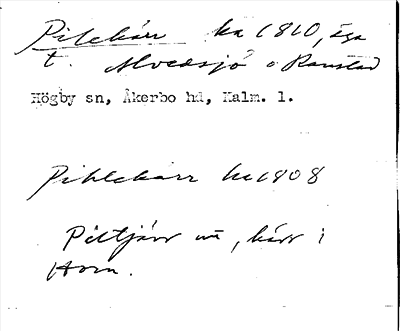 Pilekärr ha 1810, äga
t. Alvedsjö o Ramstad
Högby sn, Åkerbo hd, Kalm. l.
Pihlekärr ha 1808
Piltjärr un, kärr i
Horn.